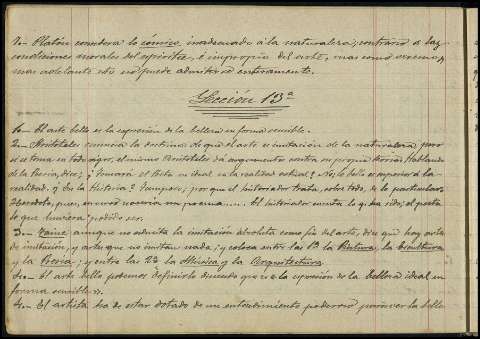 7.- Platón considera lo cómico inadecuado á la naturaleza, contrario á las
condiciones morales del espíritu, é impropio del arte, mas como veremos
mas adelante esto no puede admitirse enteramente.
Lección 13ª
1.- El arte bello es la expresion de la belleza en forma sensible.
2.- Aristóteles enuncia la doctrina de que el arte es imitacion de la naturaleza pero
si se toma en todo rigor, el mismo Aristóteles dá argumentos contra su propia teoria. Hablando
de la Poesia, dice; ¿Tomará el Poeta su ideal en la realidad actual? No; lo bello es superior á la
realidad. ¿En la Historia? Tampoco, porque el historiador trata, sobre todo, de lo particular.
Herodoto, puesto en verso no seria un poema. El historiador cuenta lo que ha sido; el poeta
lo que hubiera podido ser.
3.- Taine aunque no admite la imitación absoluta como fin del arte, dice que hay artes
de imitación, y artes que no imitan nada; y coloca entre las 1ªs la Pintura, la Escultura
y la Poesia; y entre las 2ªs la Música y la Arquitectura.
4.- El arte bello podemos definirlo diciendo que es la expresion de la belleza ideal en
forma sensible.
4.- El artista ha de estar dotado de un entendimiento poderoso para ver la belle